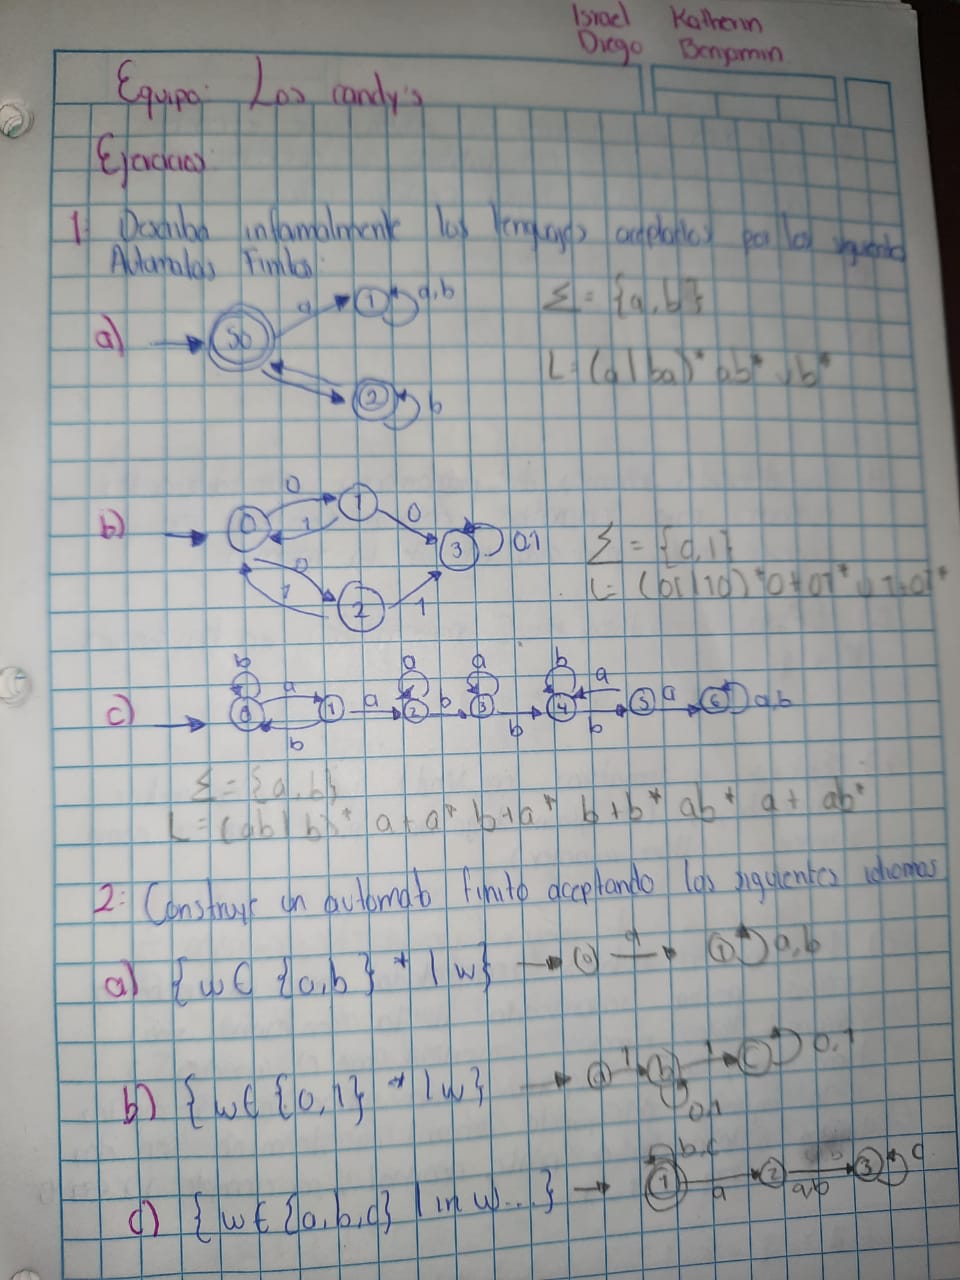 Israel Katherin
Diego Benjamin
Equipo: Los candy's
Ejercicios
1: Describa informalmente los lenguajes aceptados por los siguientes
Automatas Finitos:
a) S0 a 1 a,b 2 b
Σ = {a,b}
L= (a|ba)* ab* y b*
b) 0 0 1 1 0 3 0,1 0 1 2 1
Σ = {0,1}
L= (01|10)*0+01*
c) 0 b a b 1 a 2 a b 3 a b 4 b a b 5 a 6 a,b
Σ = {a,b}
L=(ab|b)* a+a* b+a* b+b* ab* a+ ab*
2: Construye un automat finito aceptando los siguientes idiomas
a) {w∈ {a,b} * | w} 0 a 1 a,b
b) {w∈ {0,1} * | w} a 1 b 0,1 1 c 0,1
c) {w∈ {a,b,c} | in w...} 1 b,c a 2 a,b 3 c